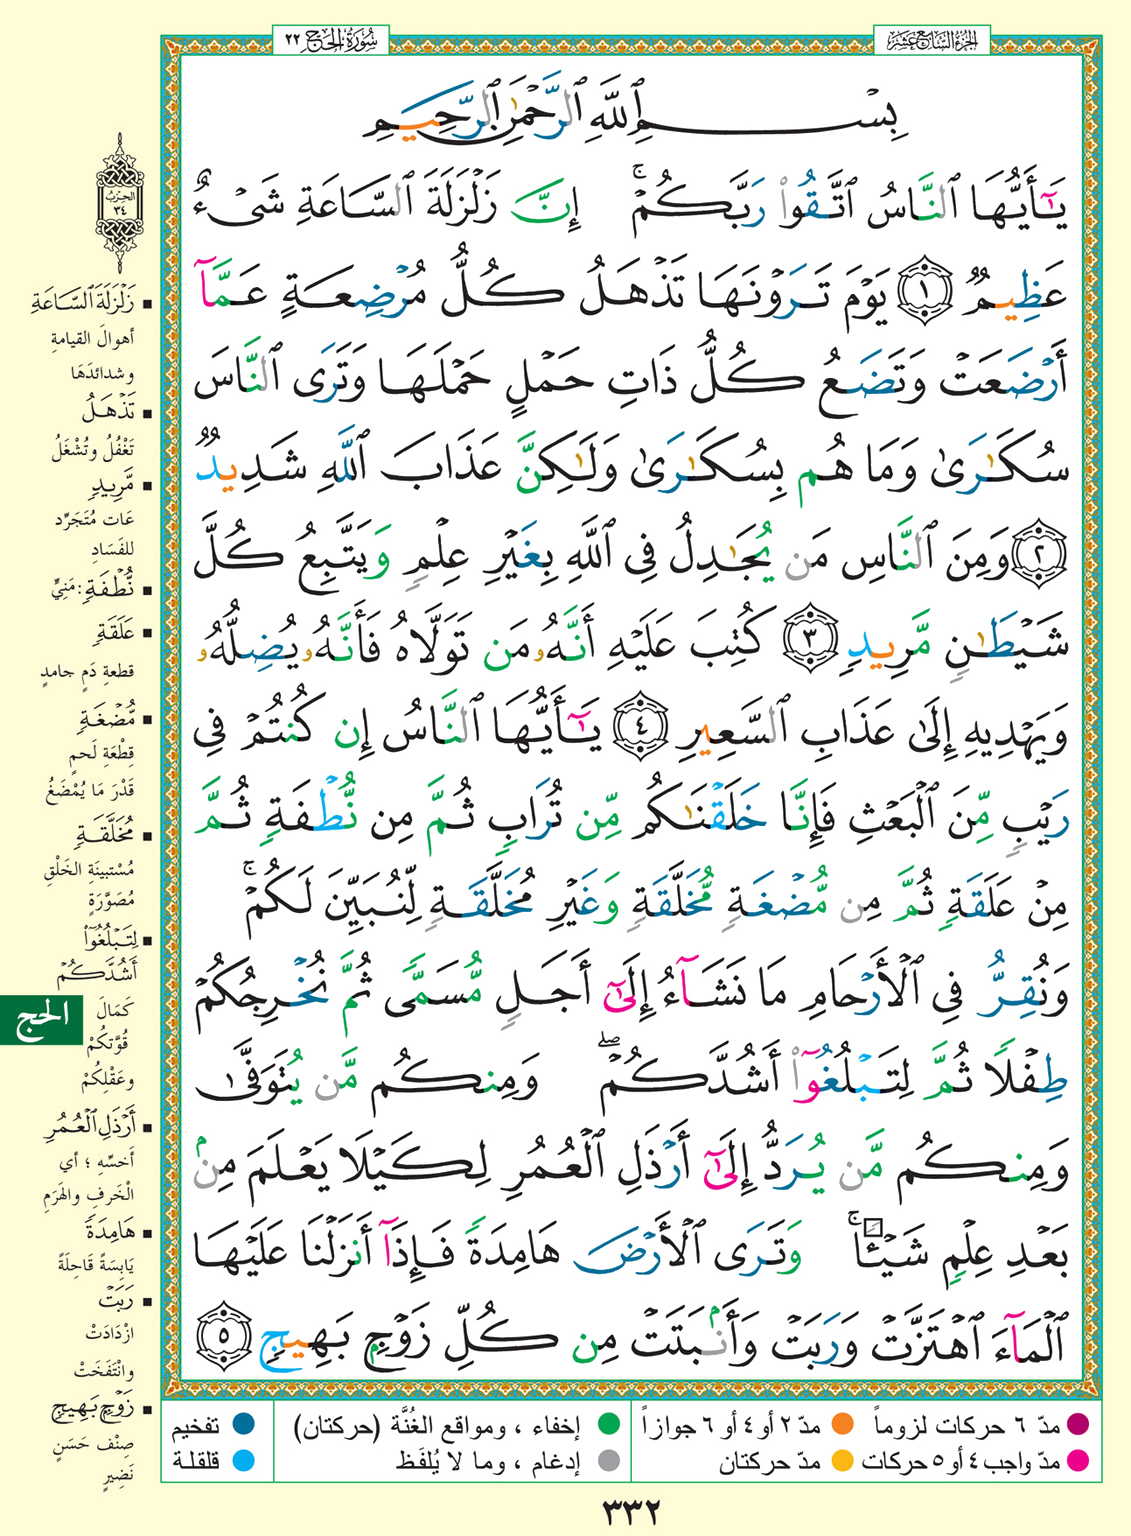 الجزء السابع عشر
سُورَةُ الحَجّ ٢٢
بِسْمِ ٱللَّهِ ٱلرَّحْمَٰنِ ٱلرَّحِيمِ
يَٰٓأَيُّهَا ٱلنَّاسُ ٱتَّقُوا۟ رَبَّكُمْ ۚ إِنَّ زَلْزَلَةَ ٱلسَّاعَةِ شَىْءٌ
عَظِيمٌ ١ يَوْمَ تَرَوْنَهَا تَذْهَلُ كُلُّ مُرْضِعَةٍ عَمَّآ
أَرْضَعَتْ وَتَضَعُ كُلُّ ذَاتِ حَمْلٍ حَمْلَهَا وَتَرَى ٱلنَّاسَ
سُكَٰرَىٰ وَمَا هُم بِسُكَٰرَىٰ وَلَٰكِنَّ عَذَابَ ٱللَّهِ شَدِيدٌ
٢ وَمِنَ ٱلنَّاسِ مَن يُجَٰدِلُ فِى ٱللَّهِ بِغَيْرِ عِلْمٍ وَيَتَّبِعُ كُلَّ
شَيْطَٰنٍ مَّرِيدٍ ٣ كُتِبَ عَلَيْهِ أَنَّهُۥ مَن تَوَلَّاهُ فَأَنَّهُۥ يُضِلُّهُۥ
وَيَهْدِيهِ إِلَىٰ عَذَابِ ٱلسَّعِيرِ ٤ يَٰٓأَيُّهَا ٱلنَّاسُ إِن كُنتُمْ فِى
رَيْبٍ مِّنَ ٱلْبَعْثِ فَإِنَّا خَلَقْنَٰكُم مِّن تُرَابٍ ثُمَّ مِن نُّطْفَةٍ ثُمَّ
مِنْ عَلَقَةٍ ثُمَّ مِن مُّضْغَةٍ مُّخَلَّقَةٍ وَغَيْرِ مُخَلَّقَةٍ لِّنُبَيِّنَ لَكُمْ ۚ
وَنُقِرُّ فِى ٱلْأَرْحَامِ مَا نَشَآءُ إِلَىٰٓ أَجَلٍ مُّسَمًّى ثُمَّ نُخْرِجُكُمْ
طِفْلًا ثُمَّ لِتَبْلُغُوٓا۟ أَشُدَّكُمْ ۖ وَمِنكُم مَّن يُتَوَفَّىٰ
وَمِنكُم مَّن يُرَدُّ إِلَىٰٓ أَرْذَلِ ٱلْعُمُرِ لِكَيْلَا يَعْلَمَ مِنۢ
بَعْدِ عِلْمٍ شَيْـًٔا ۚ وَتَرَى ٱلْأَرْضَ هَامِدَةً فَإِذَآ أَنزَلْنَا عَلَيْهَا
ٱلْمَآءَ ٱهْتَزَّتْ وَرَبَتْ وَأَنۢبَتَتْ مِن كُلِّ زَوْجٍۭ بَهِيجٍ ٥
الحزب
٣٤
زَلْزَلَةَ ٱلسَّاعَةِ
أهوالَ القيامةِ
وشدائدَهَا
تَذْهَلُ
تَغْفُلُ وتُشْغَلُ
مَّرِيدٍ
عَات مُتَجَرِّد
للفَسَادِ
نُّطْفَةٍ: مَنِيٍّ
عَلَقَةٍ
قطعةِ دَمٍ جامدٍ
مُّضْغَةٍ
قِطْعَةِ لَحمٍ
قَدْرَ مَا يُمْضَغُ
مُخَلَّقَةٍ
مُسْتبينَةِ الخَلْقِ
مُصَوَّرَةٍ
لِتَبْلُغُوٓا۟
أَشُدَّكُمْ
كَمَالَ
قُوَّتكُمْ
وعَقْلِكُمْ
أَرْذَلِ ٱلْعُمُرِ
أَخسِّهِ ؛ أي
الْخَرفِ والهَرَمِ
هَامِدَةً
يَابِسَةً قَاحِلَةً
رَبَتْ
ازْدَادَتْ
وانْتَفَخَتْ
زَوْجٍ بَهِيجٍ
صِنْف حَسَنٍ
نَضِيرٍ
الحج
مدّ ٦ حركات لزوماً
مدّ ٢ أو ٤ أو ٦ جوازاً
إخفاء ، ومواقع الغُنَّة (حركتان)
تفخيم
مدّ واجب ٤ أو ٥ حركات
مدّ حركتان
إدغام ، وما لا يُلفَظ
قلقلة
٣٣٢